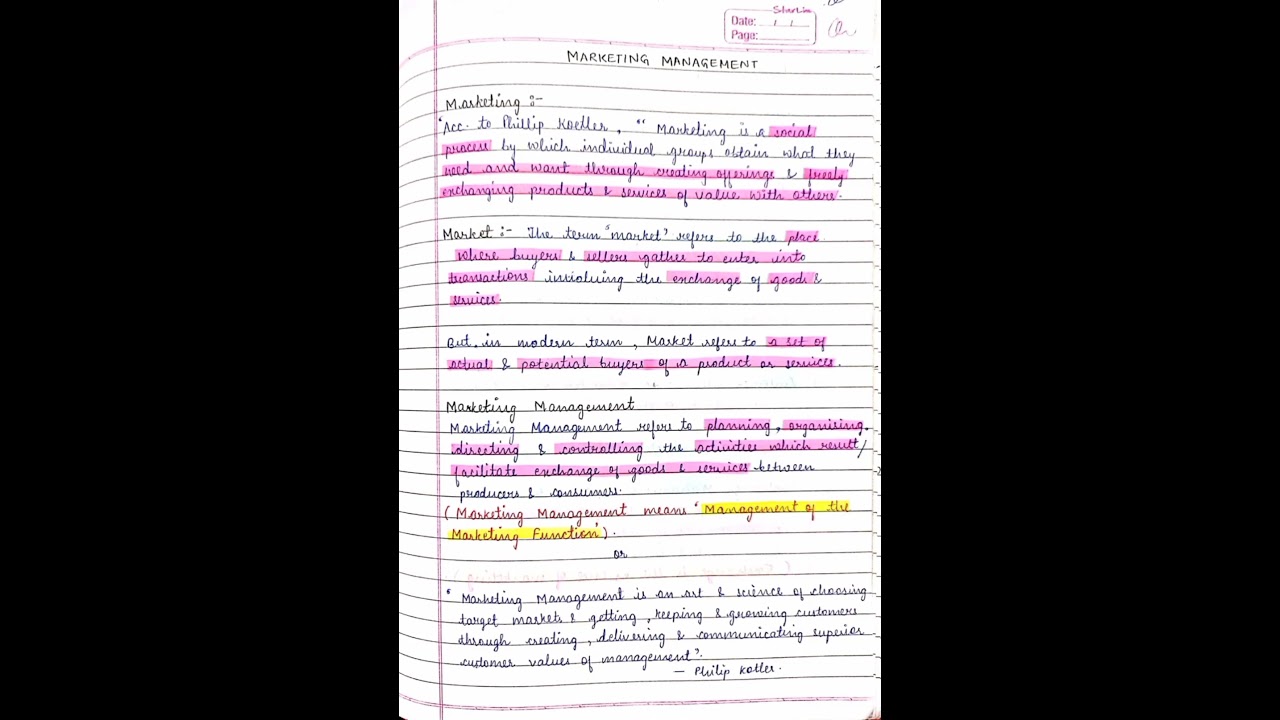 Date: / /
Page:
MARKETING MANAGEMENT
Marketing :-
"Acc. to Phillip Koetler, "Marketing is a social
process by which individual groups obtain what they
need and want through creating offerings & freely
exchanging products & services of value with others.
Market :- The term "market' refers to the place
where buyers & sellers gather to enter into
transactions involving the exchange of goods &
services.
But, in modern term, Market refers to a set of
actual & potential buyers of a product or services.
Marketing Management
Marketing Management refers to planning, organising,
directing & controlling the activities which result/
facilitate exchange of goods & services between
producers & consumers.
(Marketing Management means 'Management of the
Marketing Function').
or
" Marketing Management is an art & science of choosing
target markets & getting, keeping & growing customers
through creating, delivering & communicating superior
customer values of management".
— Philip Kotler.